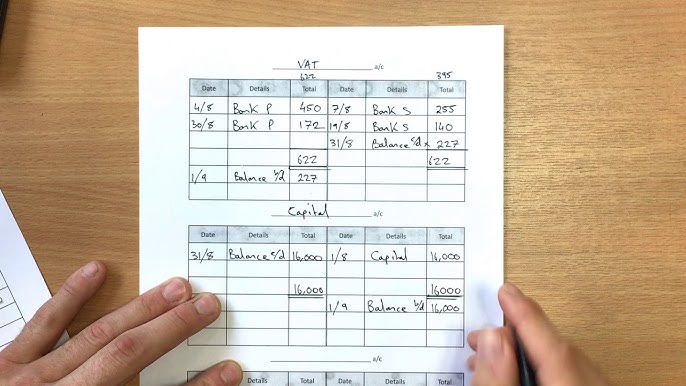 VAT a/c
622 395
Date Details Total Date Details Total
4/8 Bank P 450 7/8 Bank S 255
30/8 Bank P 172 19/8 Bank S 140
31/8 Balance c/d x 227
622 622
1/9 Balance b/d 227
Capital a/c
Date Details Total Date Details Total
31/8 Balance c/d 16,000 1/8 Capital 16,000
16,000 16000
1/9 Balance b/d 16,000
a/c
Date Details Total Date Details Total